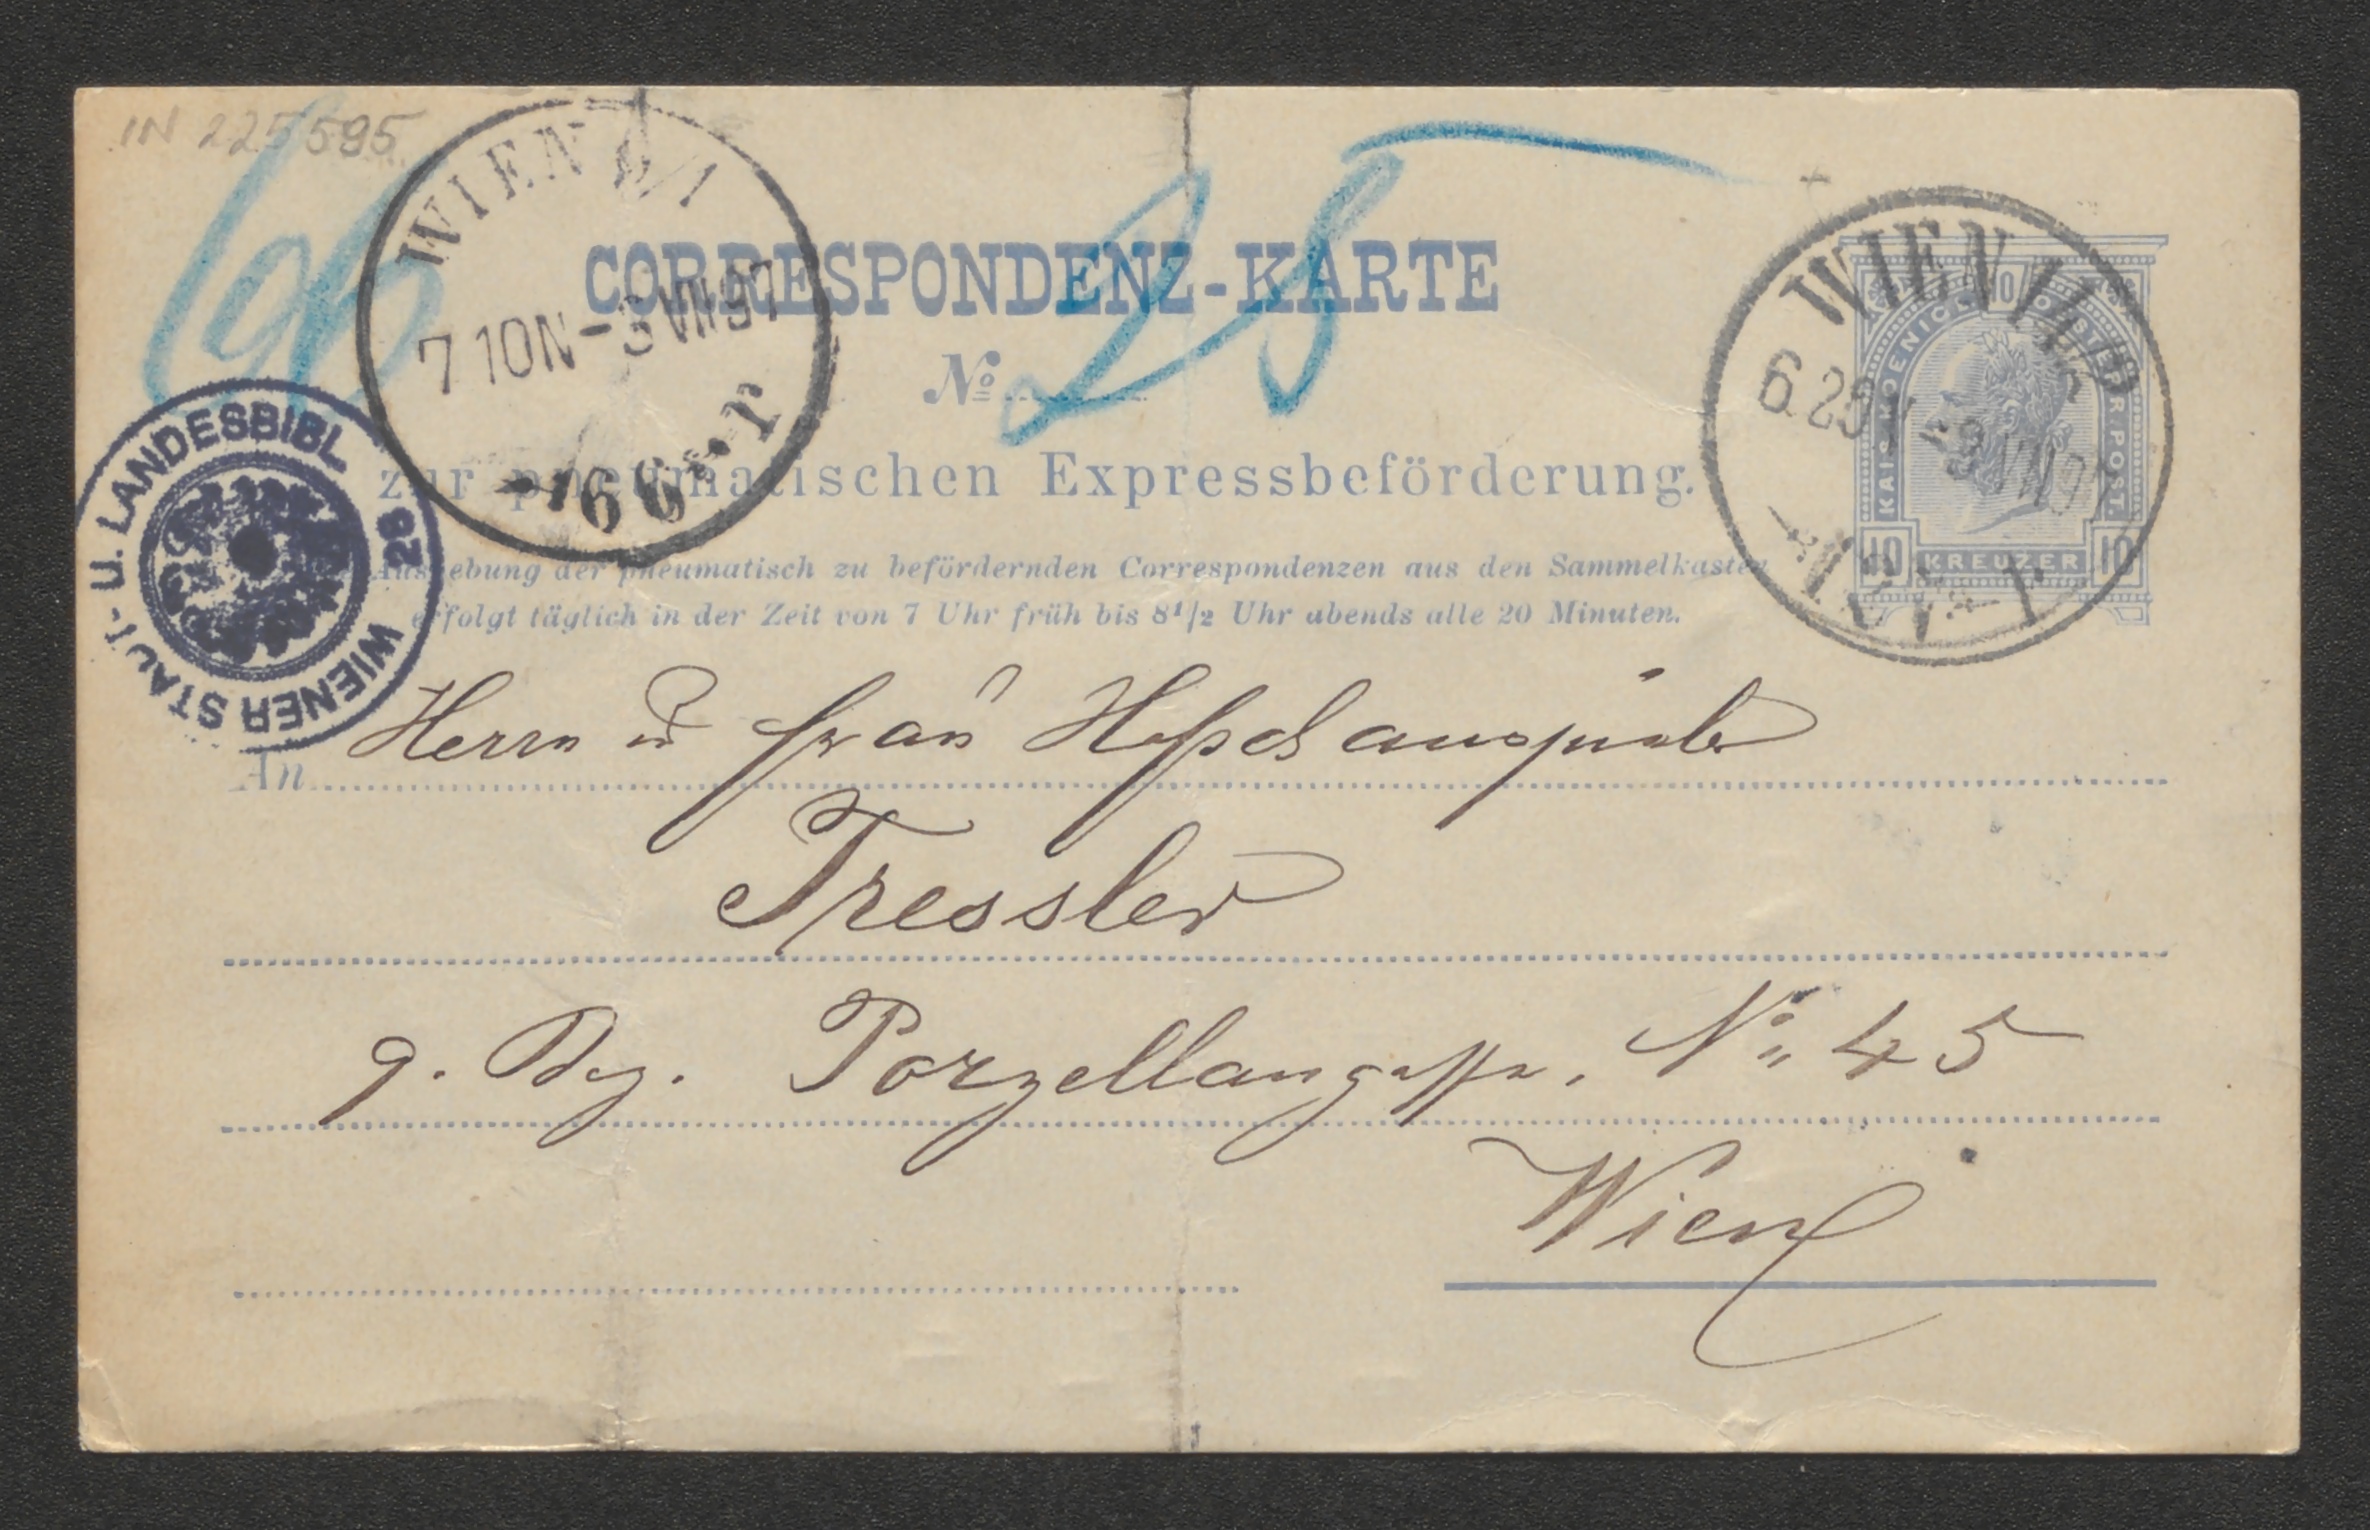 IN 225595
WIEN 9/1
7 10N -3 VII 97
66
CORRESPONDENZ-KARTE
No 28
zur pneumatischen Expressbeförderung.
Aushebung der pneumatisch zu befördernden Correspondenzen aus den Sammelkasten
erfolgt täglich in der Zeit von 7 Uhr früh bis 8 1/2 Uhr abends alle 20 Minuten.
WIENER STADT- U. LANDESBIBL 26
WIEN
6.25N -3 VII 97
KAIS. KOENIGL. OESTERR. POST.
10 KREUZER 10
An Herrn u Frau Hofschauspieler
Tressler
9. Bez. Porzellangasse, No 45
Wien